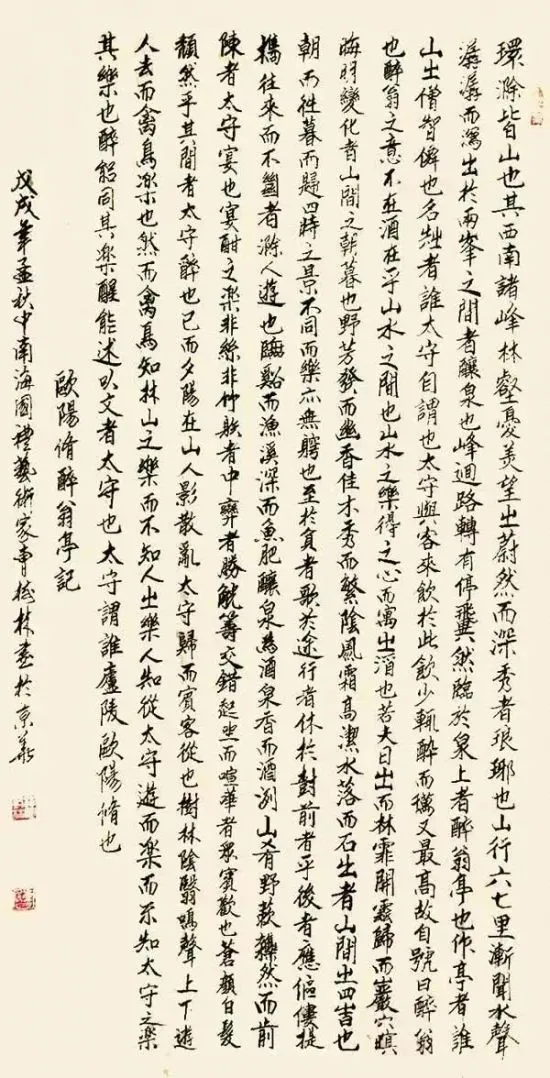 環滁皆山也其西南諸峰林壑憂美望之蔚然而深秀者琅琊也山行六七里漸聞水聲
潺潺而瀉出於兩峯之間者釀泉也峰迴路轉有停翼然臨於泉上者醉翁亭也作亭者誰
山之僧智僊也名之者誰太守自謂也太守與客來飲於此飲少輒醉而又最高故自號曰醉翁
也醉翁之意不在酒在乎山水之間也山水之樂得之心而寓之酒也若夫日出而林霏開雲歸而巖穴暝
晦明變化者山間之朝暮也野芳發而幽香佳木秀而繁陰風霜高潔水落而石出者山間之四時也
朝而往暮而歸四時之景不同而樂亦無窮也至於負者歌於途行者休於樹前者乎後者應傴僂提
攜往來而不絕者滁人遊也臨谿而漁溪深而魚肥釀泉為酒泉香而酒洌山肴野蔌雜然而前
陳者太守宴也宴酣之樂非絲非竹射者中弈者勝觥籌交錯起坐而喧華者眾賓歡也蒼顏白髮
頹然乎其間者太守醉也已而夕陽在山人影散亂太守歸而賓客從也樹林陰翳鳴聲上下遊
人去而禽鳥樂也然而禽鳥知林山之樂而不知人之樂人知從太守遊而樂而不知太守之樂
其樂也醉能同其樂醒能述以文者太守也太守謂誰廬陵歐陽脩也
歐陽脩醉翁亭記
戊戌年孟秋中南海國禮藝術家曹林書於京華